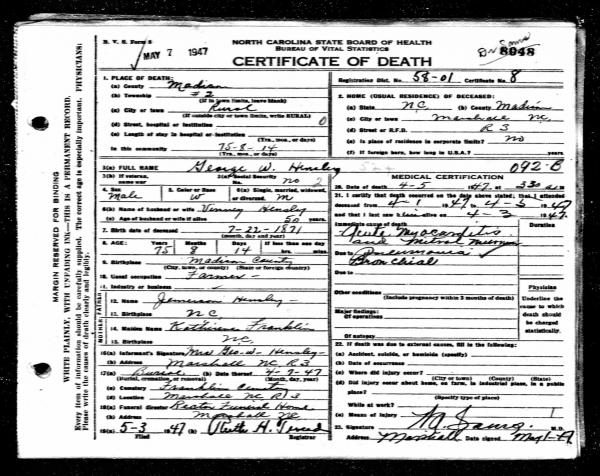 N. V. S. Form 8
MAY 7 1947
NORTH CAROLINA STATE BOARD OF HEALTH
BUREAU OF VITAL STATISTICS
CERTIFICATE OF DEATH
8048
Registration Dist. No. 58-01 Certificate No. 8
1. PLACE OF DEATH:
(a) County Madison
(b) Township #2
(If in town limits, leave blank)
(c) City or town Rural
(If outside city or town limits, write RURAL)
(d) Street, hospital or institution 0
(e) Length of stay in hospital or institution
(Yrs., mos., or days)
In this community 75-8-14
(Yrs., mos., or days)
2. HOME (USUAL RESIDENCE) OF DECEASED:
(a) State N.C. (b) County Madison
(c) City or town Marshall NC.
(d) Street or R.F.D. R 3
(e) Is place of residence in corporate limits? No
(f) If foreign born, how long in U.S.A.? years
3(a) FULL NAME George W. Hensley
092-B
3(b) If veteran, name war
3(c) Social Security No. no 2
4. Sex Male
5. Color or Race W
6(a) Single, married, widowed, or divorced. M
6(b) Name of husband or wife Venney Hensley
6(c) Age of husband or wife if alive 50 years
7. Birth date of deceased 7-22-1871
(month, day and year)
8. AGE: Years 75 Months 8 Days 14 If less than one day hrs. min.
9. Birthplace Madison County
(City, town, or county) (State or foreign country)
10. Usual occupation Farmer-
11. Industry or business
FATHER
12. Name Jemerson Hensley-
13. Birthplace N C
MOTHER
14. Maiden Name Katherine Franklin
15. Birthplace N.C.
16(a) Informant's Signature Mrs Geo-W- Hensley-
(b) Address Marshall NC R 3
17(a) Burial (b) Date thereof 4-7-47
(Burial, cremation, or removal) (Month, day, year)
(c) Cemetery Franklin Cemetery
(d) Location Marshall NC R 3
18(a) Funeral director Rector Funeral Home
(b) Address Marshall NC
19(a) 5-3 1947 (b)
Filed Registrar
MEDICAL CERTIFICATION
20. Date of death 4-5 1947 at 330 M
21. I certify that death occurred on the above date stated; that I attended
deceased from 4-1 1947 to 4-3 1947
and that I last saw h alive on 4-3 1947
Immediate cause of death Duration
Acute Myocarditis
and Mitral
Due to Pneumonia
Bronchial
Due to
Other conditions
(Include pregnancy within 3 months of death)
Major findings:
Of operations
Of autopsy
Physician
Underline the cause to which death should be charged statistically.
22. If death was due to external causes, fill in the following:
(a) Accident, suicide, or homicide (specify)
(b) Date of occurrence
(c) Where did injury occur?
(City or town) (County) (State)
(d) Did injury occur about home, on farm, in industrial place, in a public
place?
(Specify type of place)
While at work?
(e) Means of injury
23. Signature M.D.
Address Marshall Date signed May 1-47
MARGIN RESERVED FOR BINDING
WRITE PLAINLY, WITH UNFADING INK—THIS IS A PERMANENT RECORD.
Every item of information should be carefully supplied. The correct age is especially important. PHYSICIANS:
Please write the causes of death clearly and legibly.